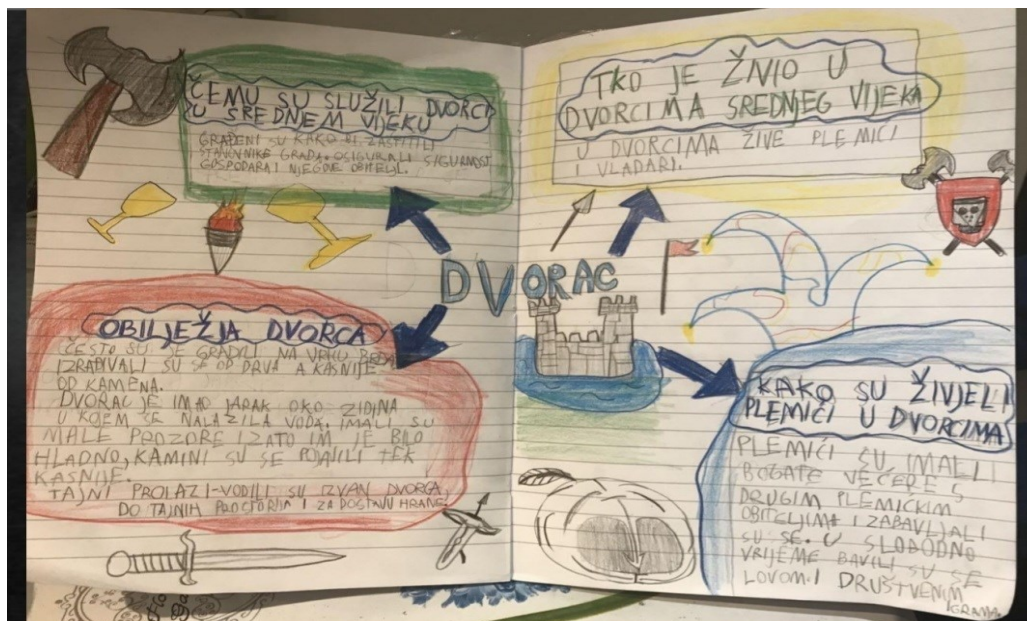 ČEMU SU SLUŽILI DVORCI
U SREDNJEM VIJEKU
GRAĐENI SU KAKO BI ZAŠTITILI
STANOVNIKE GRADA. OSIGURALI SIGURNOST
GOSPODARA I NJEGOVE OBITELJI.
TKO JE ŽIVIO U
DVORCIMA SREDNJEG VIJEKA
U DVORCIMA ŽIVE PLEMIĆI
I VLADARI.
DVORAC
OBILJEŽJA DVORCA
ČESTO SU SE GRADILI NA VRHU BRDA
IZRAĐIVALI SU SE OD DRVA A KASNIJE
OD KAMENA.
DVORAC JE IMAO JARAK OKO ZIDINA
U KOJEM SE NALAZILA VODA. IMALI SU
MALE PROZORE I ZATO IM JE BILO
HLADNO, KAMINI SU SE POJAVILI TEK
KASNIJE.
TAJNI PROLAZI-VODILI SU IZVAN DVORCA,
DO TAJNIH PROSTORIJA I ZA DOSTAVU HRANE.
KAKO SU ŽIVJELI
PLEMIĆI U DVORCIMA
PLEMIĆI SU IMALI
BOGATE VEČERE S
DRUGIM PLEMIČKIM
OBITELJIMA I ZABAVLJALI
SU SE. U SLOBODNO
VRIJEME BAVILI SU SE
LOVOM I DRUŠTVENIM
IGRAMA.